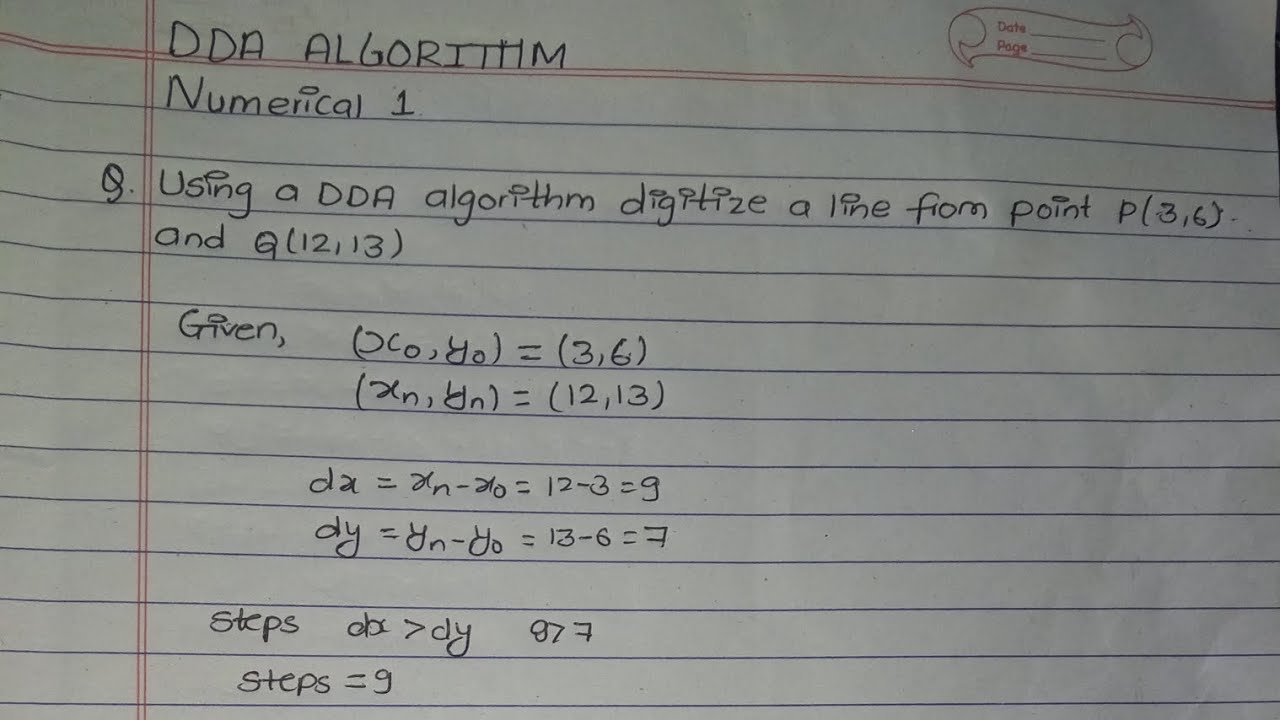 DDA ALGORITHM
Date
Page
Numerical 1.
Q. Using a DDA algorithm digitize a line from point P(3,6).
and Q(12,13)
Given, (x₀, y₀) = (3,6)
(xₙ, yₙ) = (12,13)
dx = xₙ-x₀ = 12-3 = 9
dy = yₙ-y₀ = 13-6 = 7
steps dx > dy 9>7
steps = 9